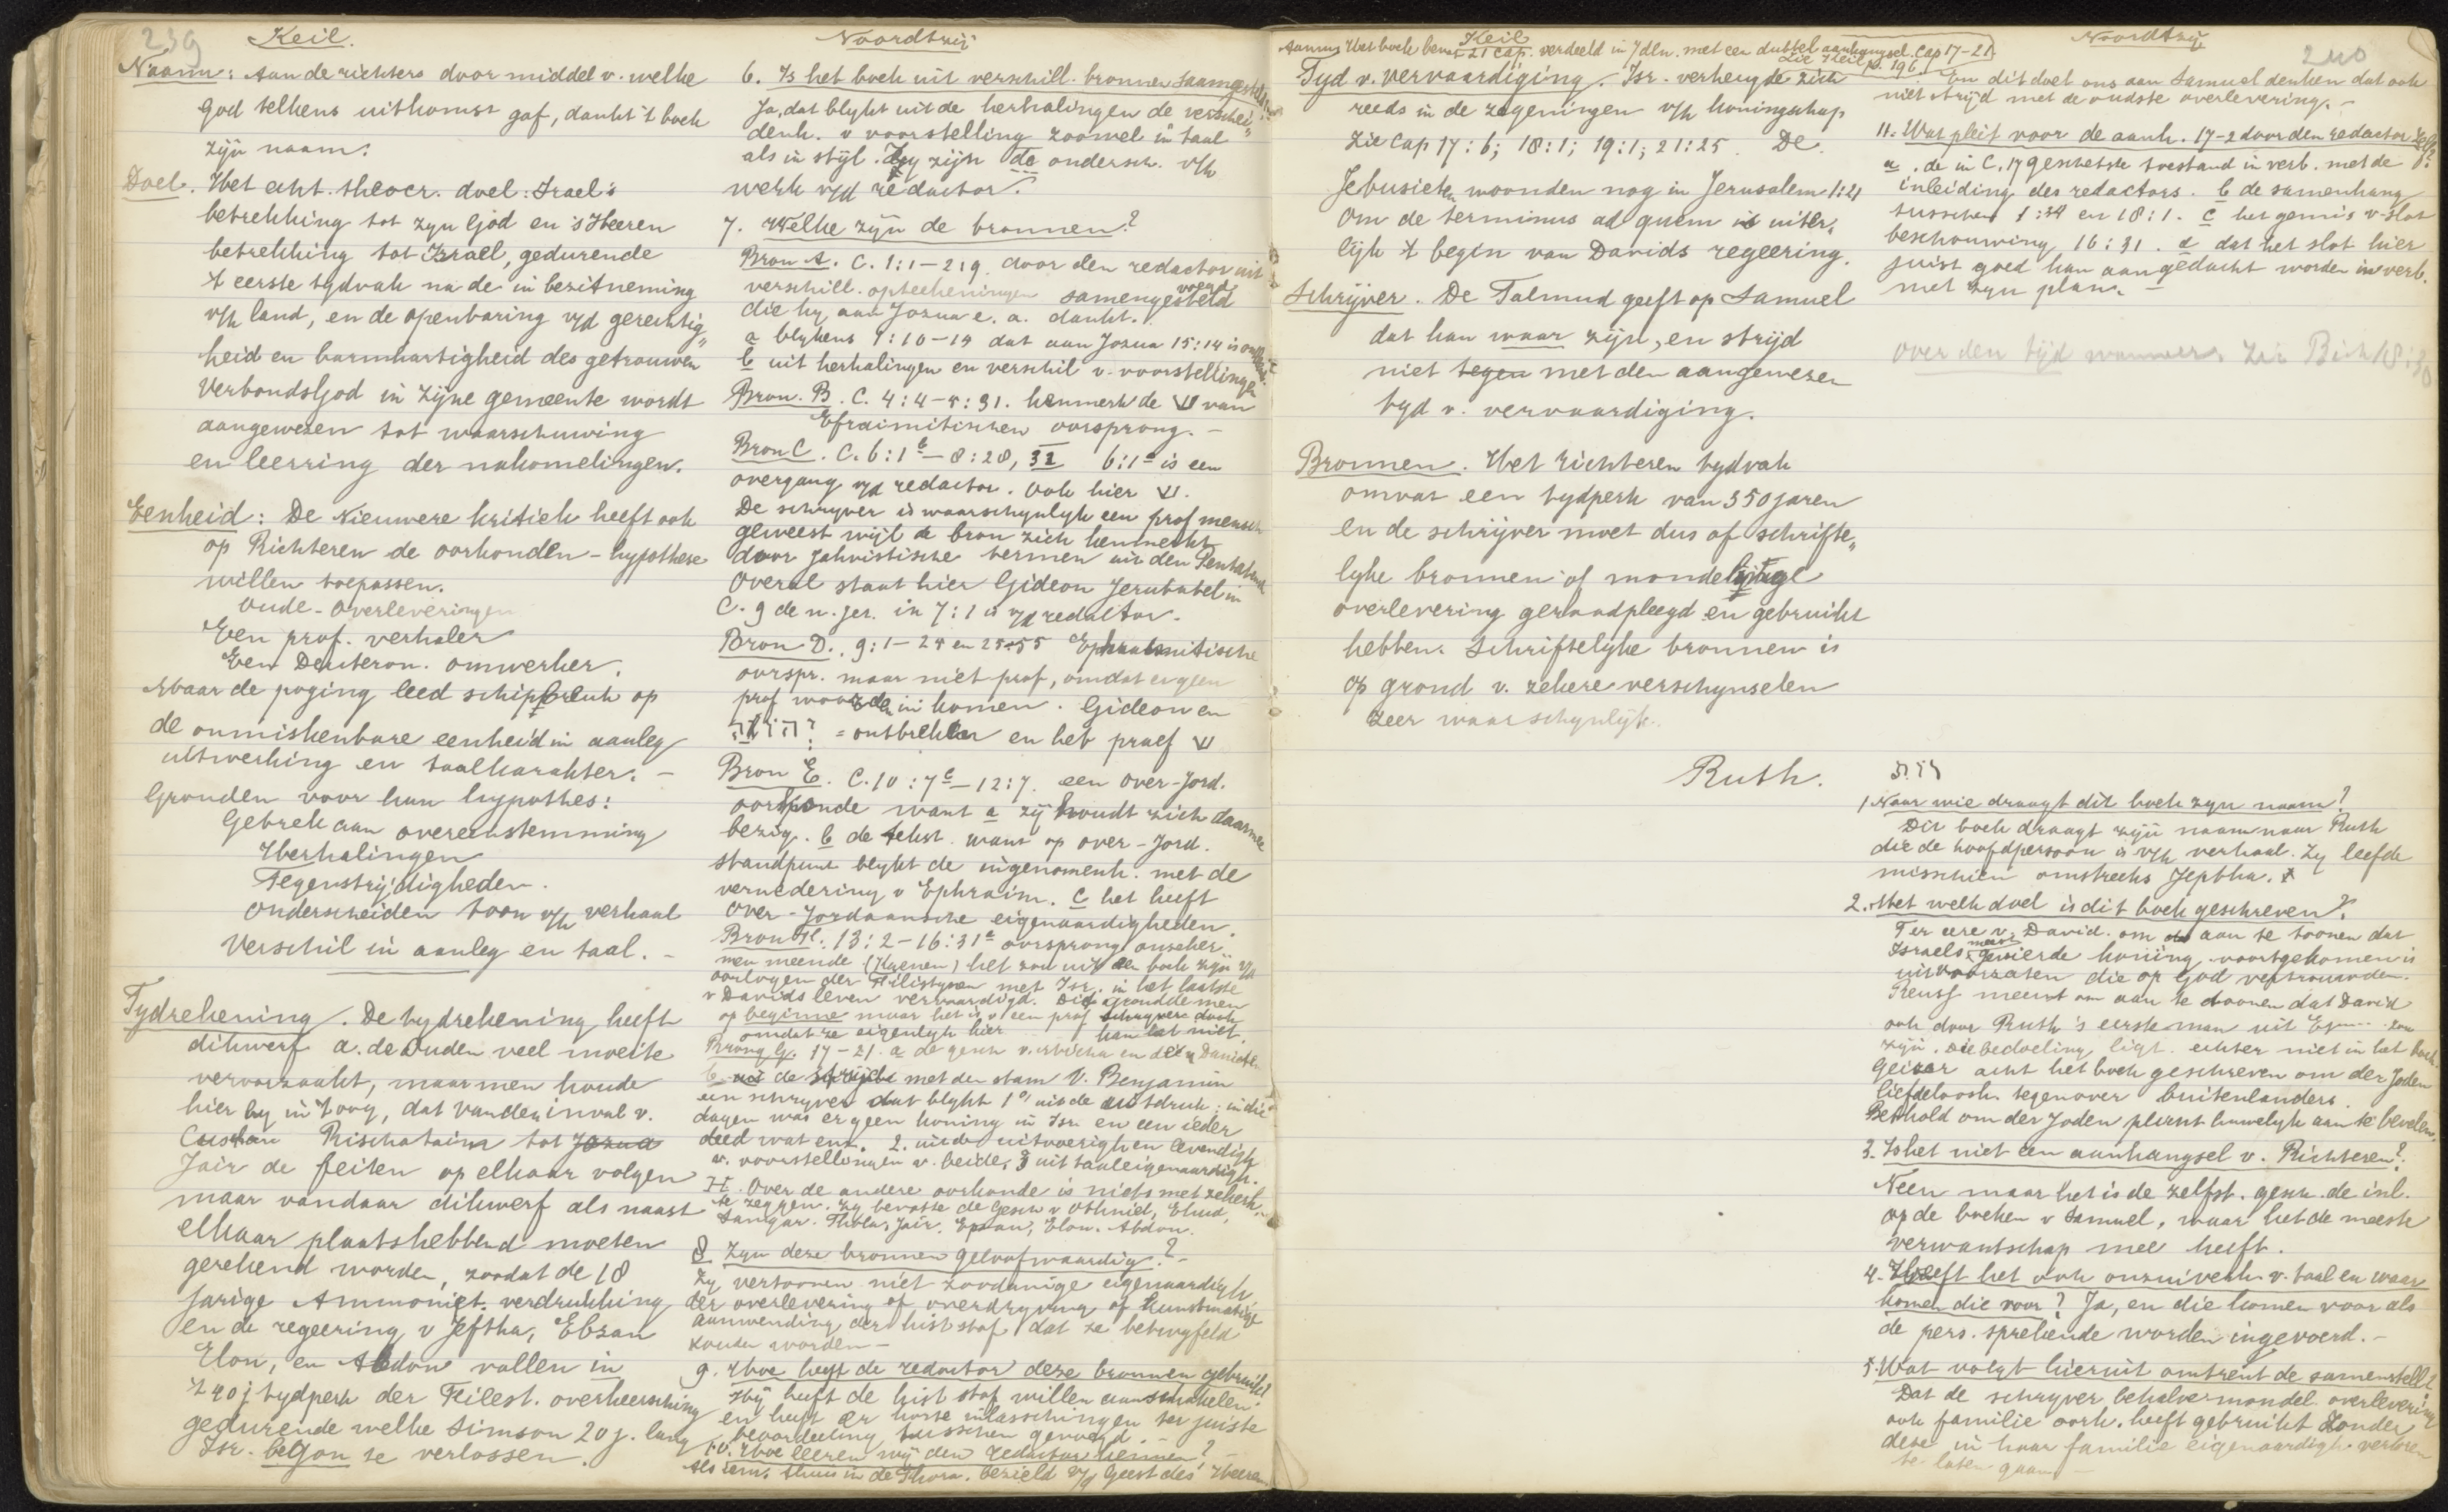 239
Keil.
Naam: Aan de richters door middel v. welke
God telkens uitkomst gaf, dankt 't boek
zijn naam.
Doel. Het echt. theocr. doel: Israel's
betrekking tot zyn God en 's Heeren
betrekking tot Israel, gedurende
't eerste tydvak na de in bezitneming
v/h land, en de openbaring v/d gerechtig„
heid en barmhartigheid des getrouwen
VerbondsGod in zijne gemeente wordt
aangewezen tot waarschuwing
en leering der nakomelingen.
Eenheid: De Nieuwere kritiek heeft ook
op Richteren de oorkonden-hypothese
willen toepassen.
Oude-Overleveringen
Een prof. verhaler
Een Deuteron. omwerker.
Maar de poging leed schipbreuk op
de onmiskenbare eenheid in aanleg
uitwerking en taalkarakter. —
Gronden voor hun hypothes:
Gebrek aan overeenstemming
Herhalingen
Tegenstrijdigheden.
Onderscheiden toon v/h verhaal
Verschil in aanleg en taal. —
Tydrekening. De tydrekening heeft
dikwerf a. de Ouden veel moeite
veroorzaakt, maar men houde
hier by in 't oog, dat van den inval v.
Cuschan Rischataim tot Jozua
Jair de feiten op elkaar volgen
maar vandaar dikwerf als naast
elkaar plaatshebbend moeten
gerekend worden, zoodat de 18
jarige Ammoniet. verdrukking
en de regeering v Jeftha, Ebzan
Elon, en Abdon vallen in
't 40 j tydperk der Filest. overheersching
gedurende welke Simson 20 j. lang
Isr. begon te verlossen.
Noordtzij
6. Is het boek uit verschill. bronnen saamgesteld?
Ja, dat blykt uit de herhalingen de verschei„
denh. v voorstelling zoowel in taal
als in styl. Zy zijn de ondersch. v/h
werk v/d redactor.
7. Welke zijn de bronnen?
Bron A. C. 1:1—2:9. door den redactor uit
verschill. opteekeningen samengesteld
die hy aan Jozua e. a. dankt.
a blykens 1:10-14 dat aan Jozua 15:14 is
b uit herhalingen en verschil v. voorstellingen
Bron. B. C. 4:4—5:31. kenmerk de ש van
Efraimitischen oorsprong. —
Bron C. C. 6:1b—8:28, 32 6:1a is een
overgang v/d redactor. Ook hier ש.
De schryver is waarschynlyk een prof mensch
geweest wijl de bron zich kenmerkt
door Jahvistische termen uit den Pentateuch
Overal staat hier Gideon Jerubabel in
C. 9 de n. jer. in 7:1 is v/d redactor.
Bron D. 9:1-24 en 25-55 Ephraimitische
oorspr. maar niet prof, omdat er geen
prof woorden in komen. Gideon en
יהוה = ontbreken en het praef ש
Bron E. C. 10:7b—12:7. een Over-Jord.
oorkonde want a zij houdt zich daarmee
bezig. b de tekst. want op over-Jord.
standpunt blykt de ingenomenh. met de
vernedering v Ephraim. c het heeft
Over-Jordaansche eigenaardigheden.
Bron F. 13:2-16:31a oorsprong onzeker
men meende (Kuenen) het zou uit een boek zijn v/d
oorlogen der Filistynen met Isr. in het laatste
v Davids leven vervaardigd. Dit grondde men
op beginne maar het is v een prof schryver doch
omdat ze eigenlyk hier kan het niet.
Bron G. 17-21. a de gesch v. Micha en der Danieten
b uit de strijd met den stam v. Benjamin
een schryver dat blykt 1o uit de uitdruk: in die
dagen was er geen koning in Isr en een ieder
deed wat enz. 2. uit de uitvoerigh en levendigh
v. voorstellingen v. beide, 3 uit taaleigenaardigh.
H. Over de andere oorkonde is niets met zekerh.
te zeggen. Zy bevatte de Gesch v Othniel, Ehud,
Samgar. Thola, Jair. Ebzan, Elon. Abdon.
8. Zyn deze bronnen geloofwaardig? —
Zy vertoonen niet zoodanige eigenaardigh.
der overlevering of overdryving of kunstmatige
aanwending der hist stof dat ze betwyfeld
zouden worden —
9. Hoe heeft de redactor deze bronnen gebruikt?
Hij heeft de hist stof willen aanschakelen
en heeft er korte inlasschingen ter juiste
beoordeeling tusschen gevoegd. —
10. Hoe leeren wij den redactor kennen? —
Als iem. thuis in de Thora. bezield v/d Geest des Heeren
Keil
Aanm. Het boek bevat 21 Cap. verdeeld in 3 dln. met een dubbel aanhangsel. Cap 17-21
Zie Keil p. 196
Tyd v. vervaardiging. Isr. verheugde zich
reeds in de zegeningen v/h koningschap
zie Cap 17:6; 18:1; 19:1; 21:25. De
Jebusieten woonden nog in Jerusalem 1:21
Om de terminus ad quem is uiter„
lijk 't begin van Davids regeering.
Schrijver. De Talmud geeft op Samuel
dat kan waar zijn, en strijd
niet tegen met den aangewezen
tyd v. vervaardiging.
Bronnen. Het Richteren tydvak
omvat een tydperk van 350 jaren
en de schrijver moet dus of schrifte„
lyke bronnen of mondelinge
overlevering geraadpleegd en gebruikt
hebben. Schriftelyke bronnen is
op grond v. zekere verschynselen
zeer waarschynlyk.
Noordtzij
240
En dit doet ons aan Samuel denken dat ook
niet strijd met de oudste overlevering. —
11. Wat pleit voor de aanh. 17-21 door den redactor zelf?
a. de in C. 17 geschetste toestand in verb. met de
inleiding des redactors. b de samenhang
tusschen 1:34 en 18:1. c het gemis v. slot
beschouwing 16:31. d dat het slot hier
juist goed kan aangedacht worden in verb.
met zyn plan. —
over den tijd wanneer zie Richt 18:30
Ruth.
רות
1 Naar wie draagt dit boek zyn naam?
Dit boek draagt zijn naam naar Ruth
die de hoofdpersoon is v/h verhaal. Zy leefde
misschien omstreeks Jephta.
2. Met welk doel is dit boek geschreven?
Ter eere v. David. om aan te toonen dat
Israels meest gevierde koning voortgekomen is
uit voorzaten die op God vertrouwden.
Reuss meent om aan te toonen dat David
ook door Ruth's eerste man uit Ef.... zou
zijn. Die bedoeling ligt echter niet in het boek.
Geiger acht het boek geschreven om der Joden
liefdeloosh. tegenover buitenlanders.
Berthold om der Joden plicht huwelyk aan te bevelen.
3. Is het niet een aanhangsel v. Richteren?
Neen maar het is de zelfst. gesch. de inl.
op de boeken v Samuel, waar het de meeste
verwantschap mee heeft.
4. Heeft het ook onzuiverh. v. taal en waar
komen die voor? Ja, en die komen voor als
de pers. sprekende worden ingevoerd. —
5. Wat volgt hieruit omtrent de samenstell?
Dat de schryver behalve mondel. overlevering
ook familie oork. heeft gebruikt zonder
deze in haar familie eigenaardigh. verloren
te laten gaan —